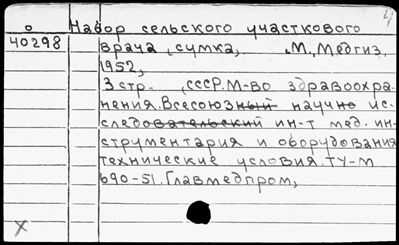 4
о Набор сельского участкового
40298 врача, сумка, М., Медгиз,
1952,
3 стр. , СССР. М-во здравоохра-
нения. Всесоюзный научно ис-
следовательский ин-т мед. ин-
струментария и оборудования
технические условия. ТУ-М
690-51. Главмедпром,
X